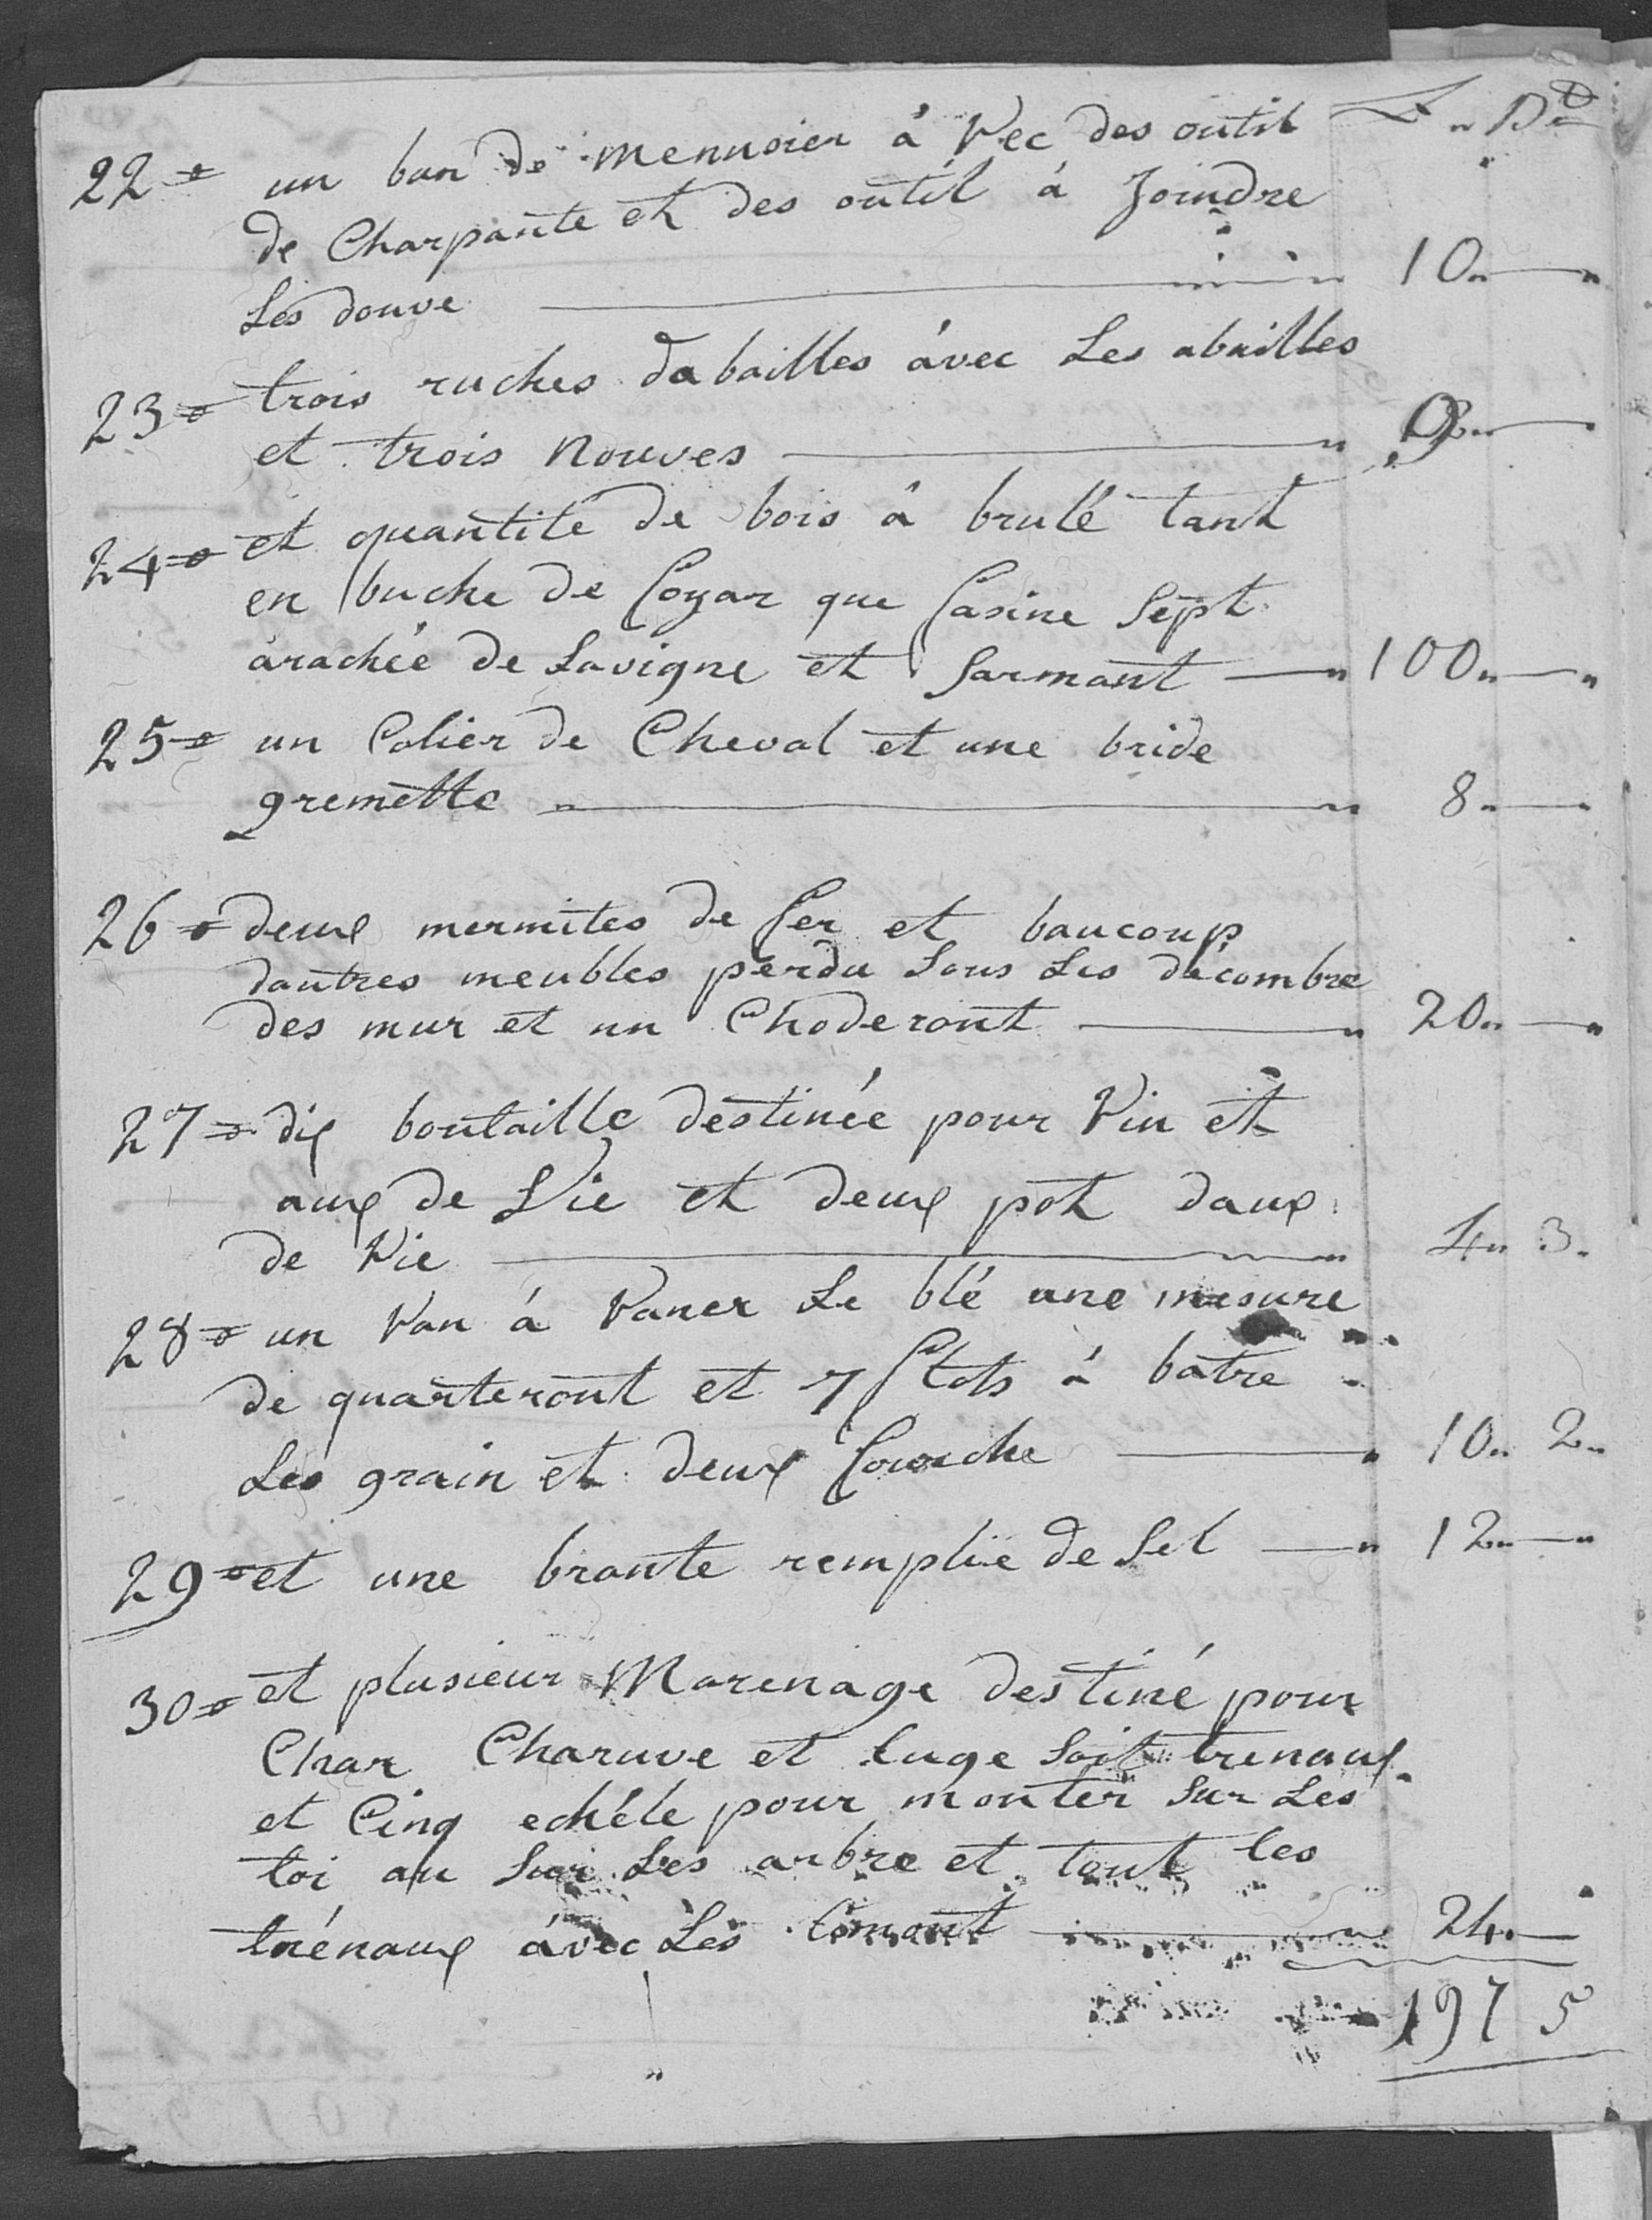 22= un ban de menusier à vec des outil
de Charpante et des outil à Joindre
Les douve 10
23= trois ruches dabailles àvec Les abailles
et trois nouves 9
24= et quantité de bois à brulé tant
en buche de foyar que fasine Sept
àrachée de Lavigne et Sarmant 100
25= un Colier de Cheval et une bride
gremette 8
26= deux mermites de fer et baucoup
dautres meubles perdu Sous Les décombre
des mur et un Choderont 20
27= dix boutaille destinée pour Vin et
aux de Vie et deux pot daux
de Vie 4 3
28= un Van à Vaner Le blé une mesure
de quarteront et 7 à batre
Les grain et deux fourche 10 2
29= et une brante remplie de Sel 12
30= et plusieur Marenage destiné pour
Char Charuve et luge Soit trenaux
et Cinq echéle pour monter Sur Les
toi au Sur Les arbre et tout les
trénaux àvec Les 24
197 5